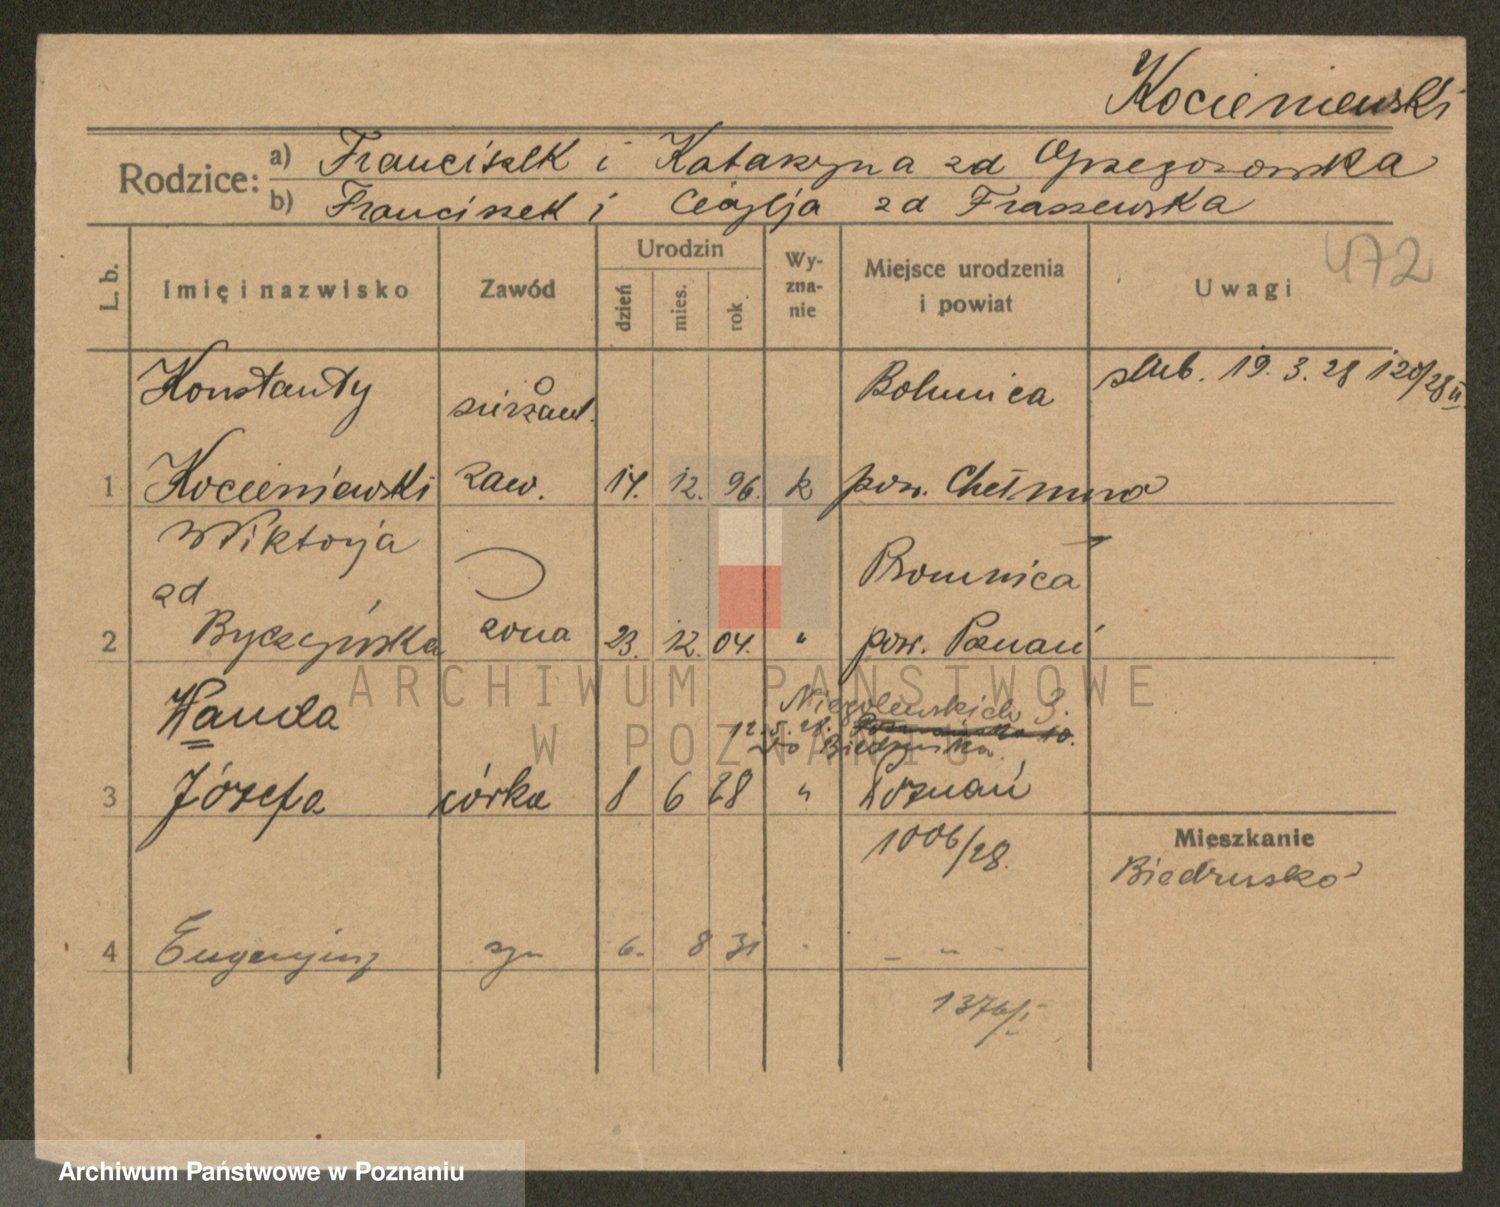 Kocieniewski
Rodzice:
a) Franciszek i Katarzyna zd Grzegorowska
b) Franciszek i Cecylja zd Fraszewska
472
L. b.
Imię i nazwisko
Zawód
Urodzin
dzień
mies.
rok
Wy-
zna-
nie
Miejsce urodzenia
i powiat
Uwagi
Konstanty
Bolumica
ślub. 19. 3. 28 120/28 II.
1 Kocieniewski zaw. 14. 12. 96. k pow. Chełmno
Wiktorja
zd
Bromnica
2 Byczyńska żona 23. 12. 04. " pow. Poznań
Wanda
Niegolewskich 3.
12. 5. 28. 10.
do Biedruska
3 Józefa córka 8 6 28 " Poznań
1006/28.
Mieszkanie
Biedrusko
4 Eugenjusz syn 6. 8 31 - - " -
1376/I
ARCHIWUM PAŃSTWOWE
W POZNANIU
Archiwum Państwowe w Poznaniu